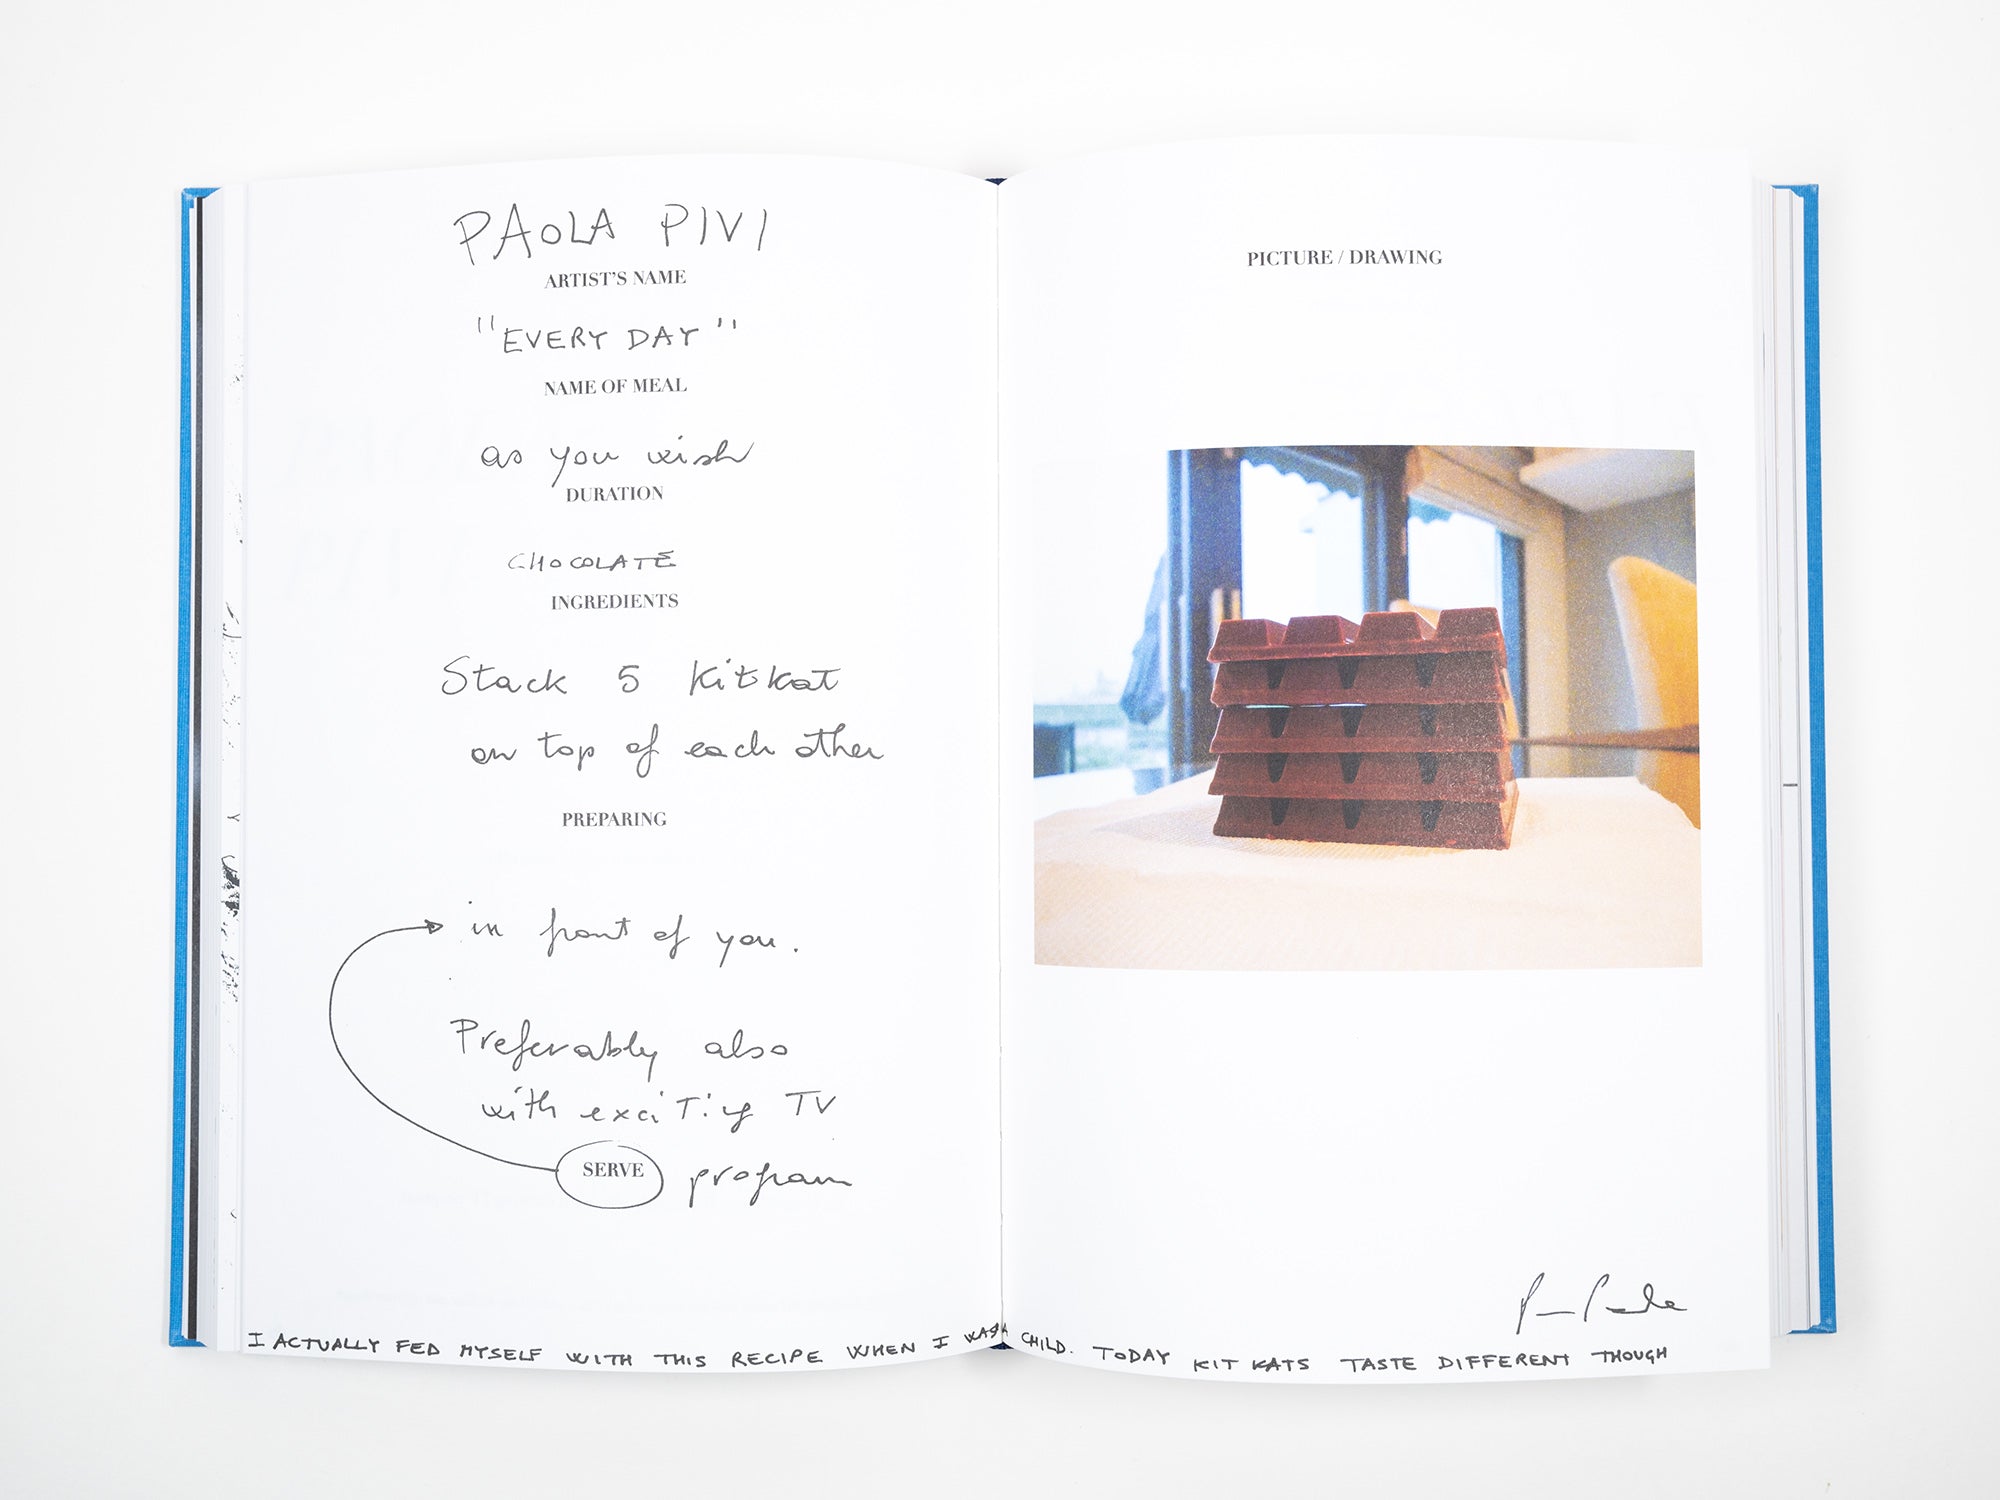 PAOLA PIVI
ARTIST'S NAME
"EVERY DAY"
NAME OF MEAL
as you wish
DURATION
CHOCOLATE
INGREDIENTS
Stack 5 Kitkat
on top of each other
PREPARING
in front of you.
Preferably also
with exciting TV
SERVE program
I ACTUALLY FED MYSELF WITH THIS RECIPE WHEN I WAS A CHILD. TODAY KIT KATS TASTE DIFFERENT THOUGH
PICTURE / DRAWING